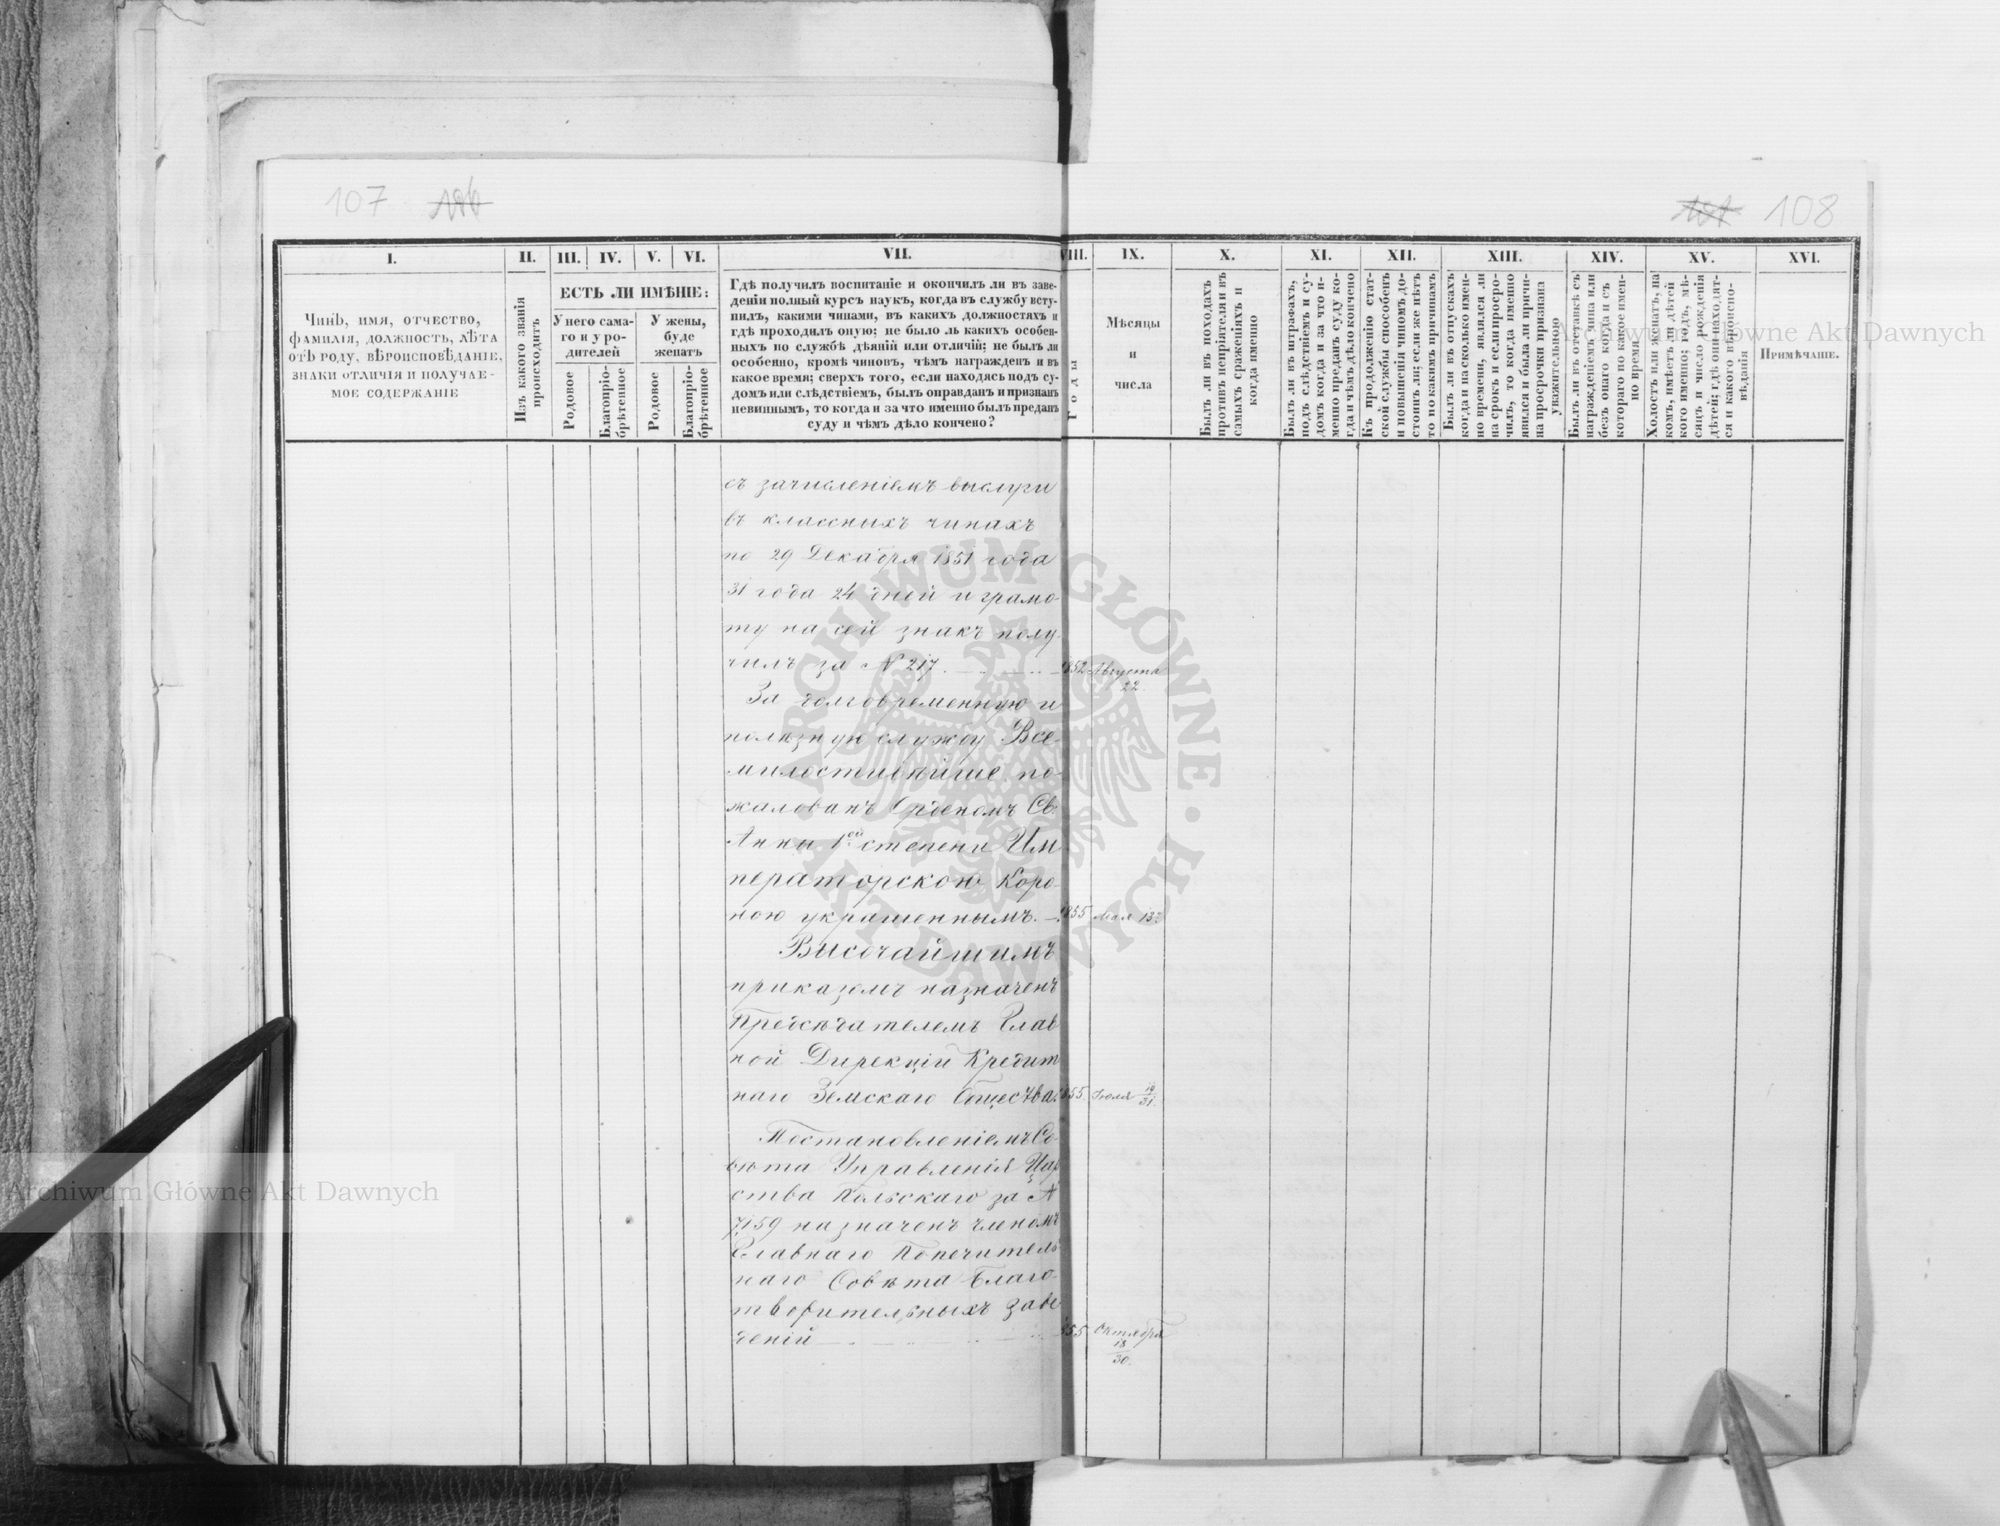 107 106
107 108
I.
II.
III.
IV.
V.
VI.
VII.
VIII.
IX.
X.
XI.
XII.
XIII.
XIV.
XV.
XVI.
Чинъ, имя, отчество,
фамилія, должность, лѣта
отъ роду, вѣроисповѣданіе,
знаки отличія и получае-
мое содержаніе
Изъ какого званія
происходитъ
ЕСТЬ ЛИ ИМѢНІЕ:
У него сама-
го и у ро-
дителей
У жены,
буде
женатъ
Родовое
Благопріо-
брѣтенное
Родовое
Благопріо-
брѣтенное
Гдѣ получилъ воспитаніе и окончилъ ли въ заве-
деніи полный курсъ наукъ, когда въ службу всту-
пилъ, какими чинами, въ какихъ должностяхъ и
гдѣ проходилъ оную; не было ль какихъ особен-
ныхъ по службѣ дѣяній или отличій; не былъ ли
особенно, кромѣ чиновъ, чѣмъ награжденъ и въ
какое время; сверхъ того, если находясь подъ су-
домъ или слѣдствіемъ, былъ оправданъ и признанъ
невиннымъ, то когда и за что именно былъ преданъ
суду и чѣмъ дѣло кончено?
Годы
Мѣсяцы
и
числа
Былъ ли въ походахъ
противъ непріятеля и въ
самыхъ сраженіяхъ и
когда именно
Былъ ли въ штрафахъ,
подъ слѣдствіемъ и су-
домъ когда и за что и-
менно преданъ суду ко-
гда и чѣмъ дѣло кончено
Къ продолженію стат-
ской службы способенъ
и повышенія чиномъ до-
стоинъ ли; если же нѣтъ
то по какимъ причинамъ
Былъ ли въ отпускахъ
когда и насколько имен-
но времени, являлся ли
на срокъ и если просро-
чилъ, то когда именно
явился и была ли причи-
на просрочки признана
уважительною
Былъ ли въ отставкѣ съ
награжденіемъ чина или
безъ онаго когда и съ
котораго по какое имен-
но время
Холостъ или женатъ, на
комъ, имѣетъ ли дѣтей
кого именно; годъ, мѣ-
сяцъ и число рожденія
дѣтей; гдѣ они находят-
ся и какого вѣроиспо-
вѣданія
Примѣчаніе.
съ зачисленіемъ выслуги
въ классныхъ чинахъ
по 29 Декабря 1851 года
31 года 24 дней и грамо-
ту на сей знакъ полу-
чилъ за № 217 1852 Августа
22.
За долговременную и
полезную службу Все-
милостивѣйше по-
жалованъ Орденомъ Св.
Анны 1ой степени Им
ператорскою Коро-
ною украшеннымъ. 1855 Мая 13
Высочайшимъ
приказомъ назначенъ
Предсѣдателемъ Глав
ной Дирекціи Кредит
наго Земскаго Общества. 1855 Іюля 19/31.
Постановленіемъ Со-
вѣта Управленія Цар
ства Польскаго за №
7,159 назначенъ членомъ
Главнаго Попечитель
наго Совѣта Благо-
творительныхъ Заве
деній 1855 Октября
18/30.
ARCHIWUM GŁÓWNE AKT DAWNYCH
Archiwum Główne Akt Dawnych
Archiwum Główne Akt Dawnych